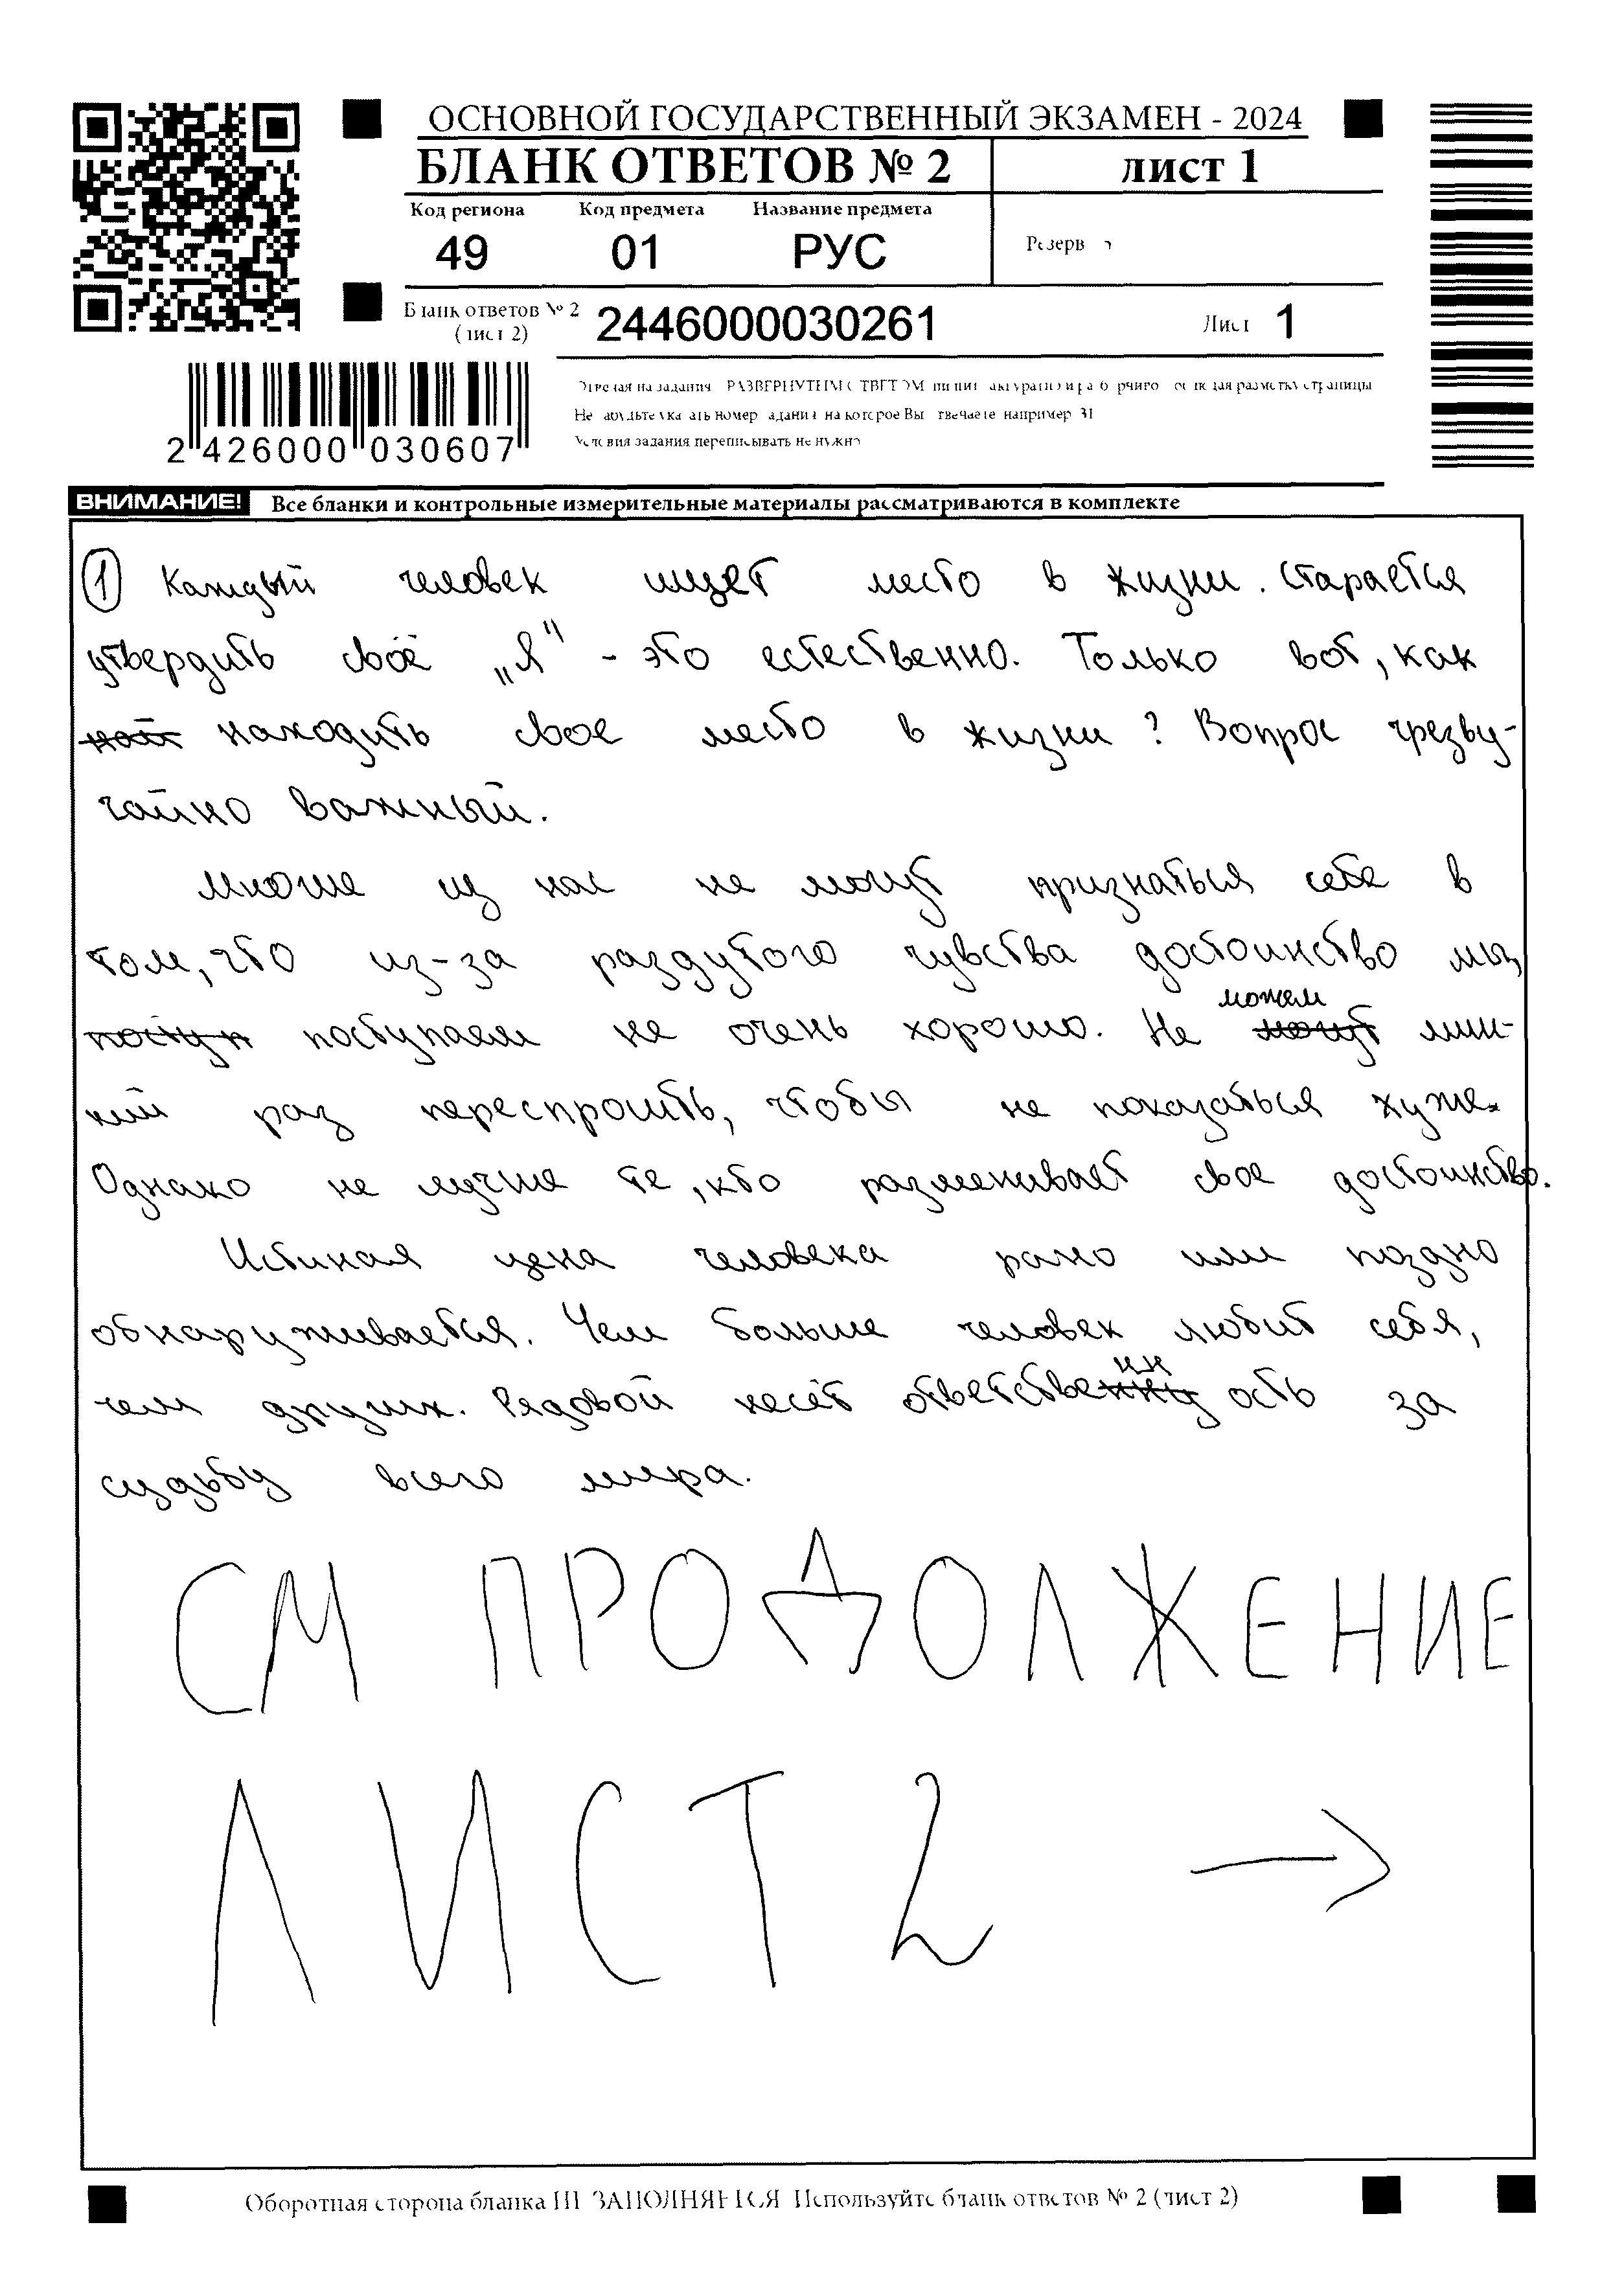 ОСНОВНОЙ ГОСУДАРСТВЕННЫЙ ЭКЗАМЕН - 2024
БЛАНК ОТВЕТОВ № 2 лист 1
Код региона Код предмета Название предмета
49 01 РУС Резерв
Бланк ответов № 2 (лист 2) 2446000030261 Лист 1
2 426000 030607
Не номер задания на которое Вы например 31
Условия задания переписывать не нужно
ВНИМАНИЕ! Все бланки и контрольные измерительные материалы рассматриваются в комплекте
1 Каждый человек ищет место в жизни. Старается
утвердить своё „Я" - это естественно. Только вот, как
находить свое место в жизни? Вопрос чрезвы-
чайно важный.
Многие из нас не могут признаться себе в
том, что из-за раздутого чувства достоинство мы,
поступаем не очень хорошо. Не можем лиш-
ний раз переспросить, чтобы не показаться хуже.
Однако не лучше те, кто разменивает свое достоинство.
Истиная цена человека рано или поздно
обнаруживается. Чем больше человек любит себя,
чем других. Рядовой несёт ответственность за
судьбу всего мира.
СМ ПРОДОЛЖЕНИЕ
ЛИСТ 2 →
Оборотная сторона бланка НЕ ЗАПОЛНЯЕТСЯ Используйте бланк ответов № 2 (лист 2)